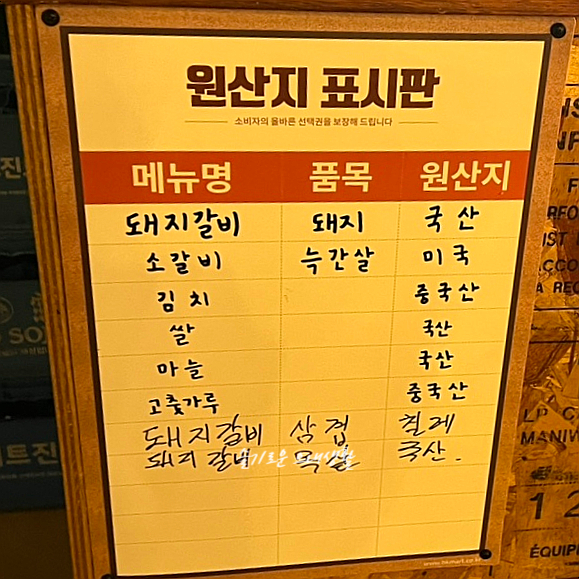 원산지 표시판
소비자의 올바른 선택권을 보장해 드립니다
메뉴명 품목 원산지
돼지갈비 돼지 국산
소갈비 늑간살 미국
김치 중국산
쌀 국산
마늘 국산
고춧가루 중국산
돼지갈비 삼겹 칠레
돼지갈비 목살 국산.
1 2
ÉQUIP
MANIW
A REC